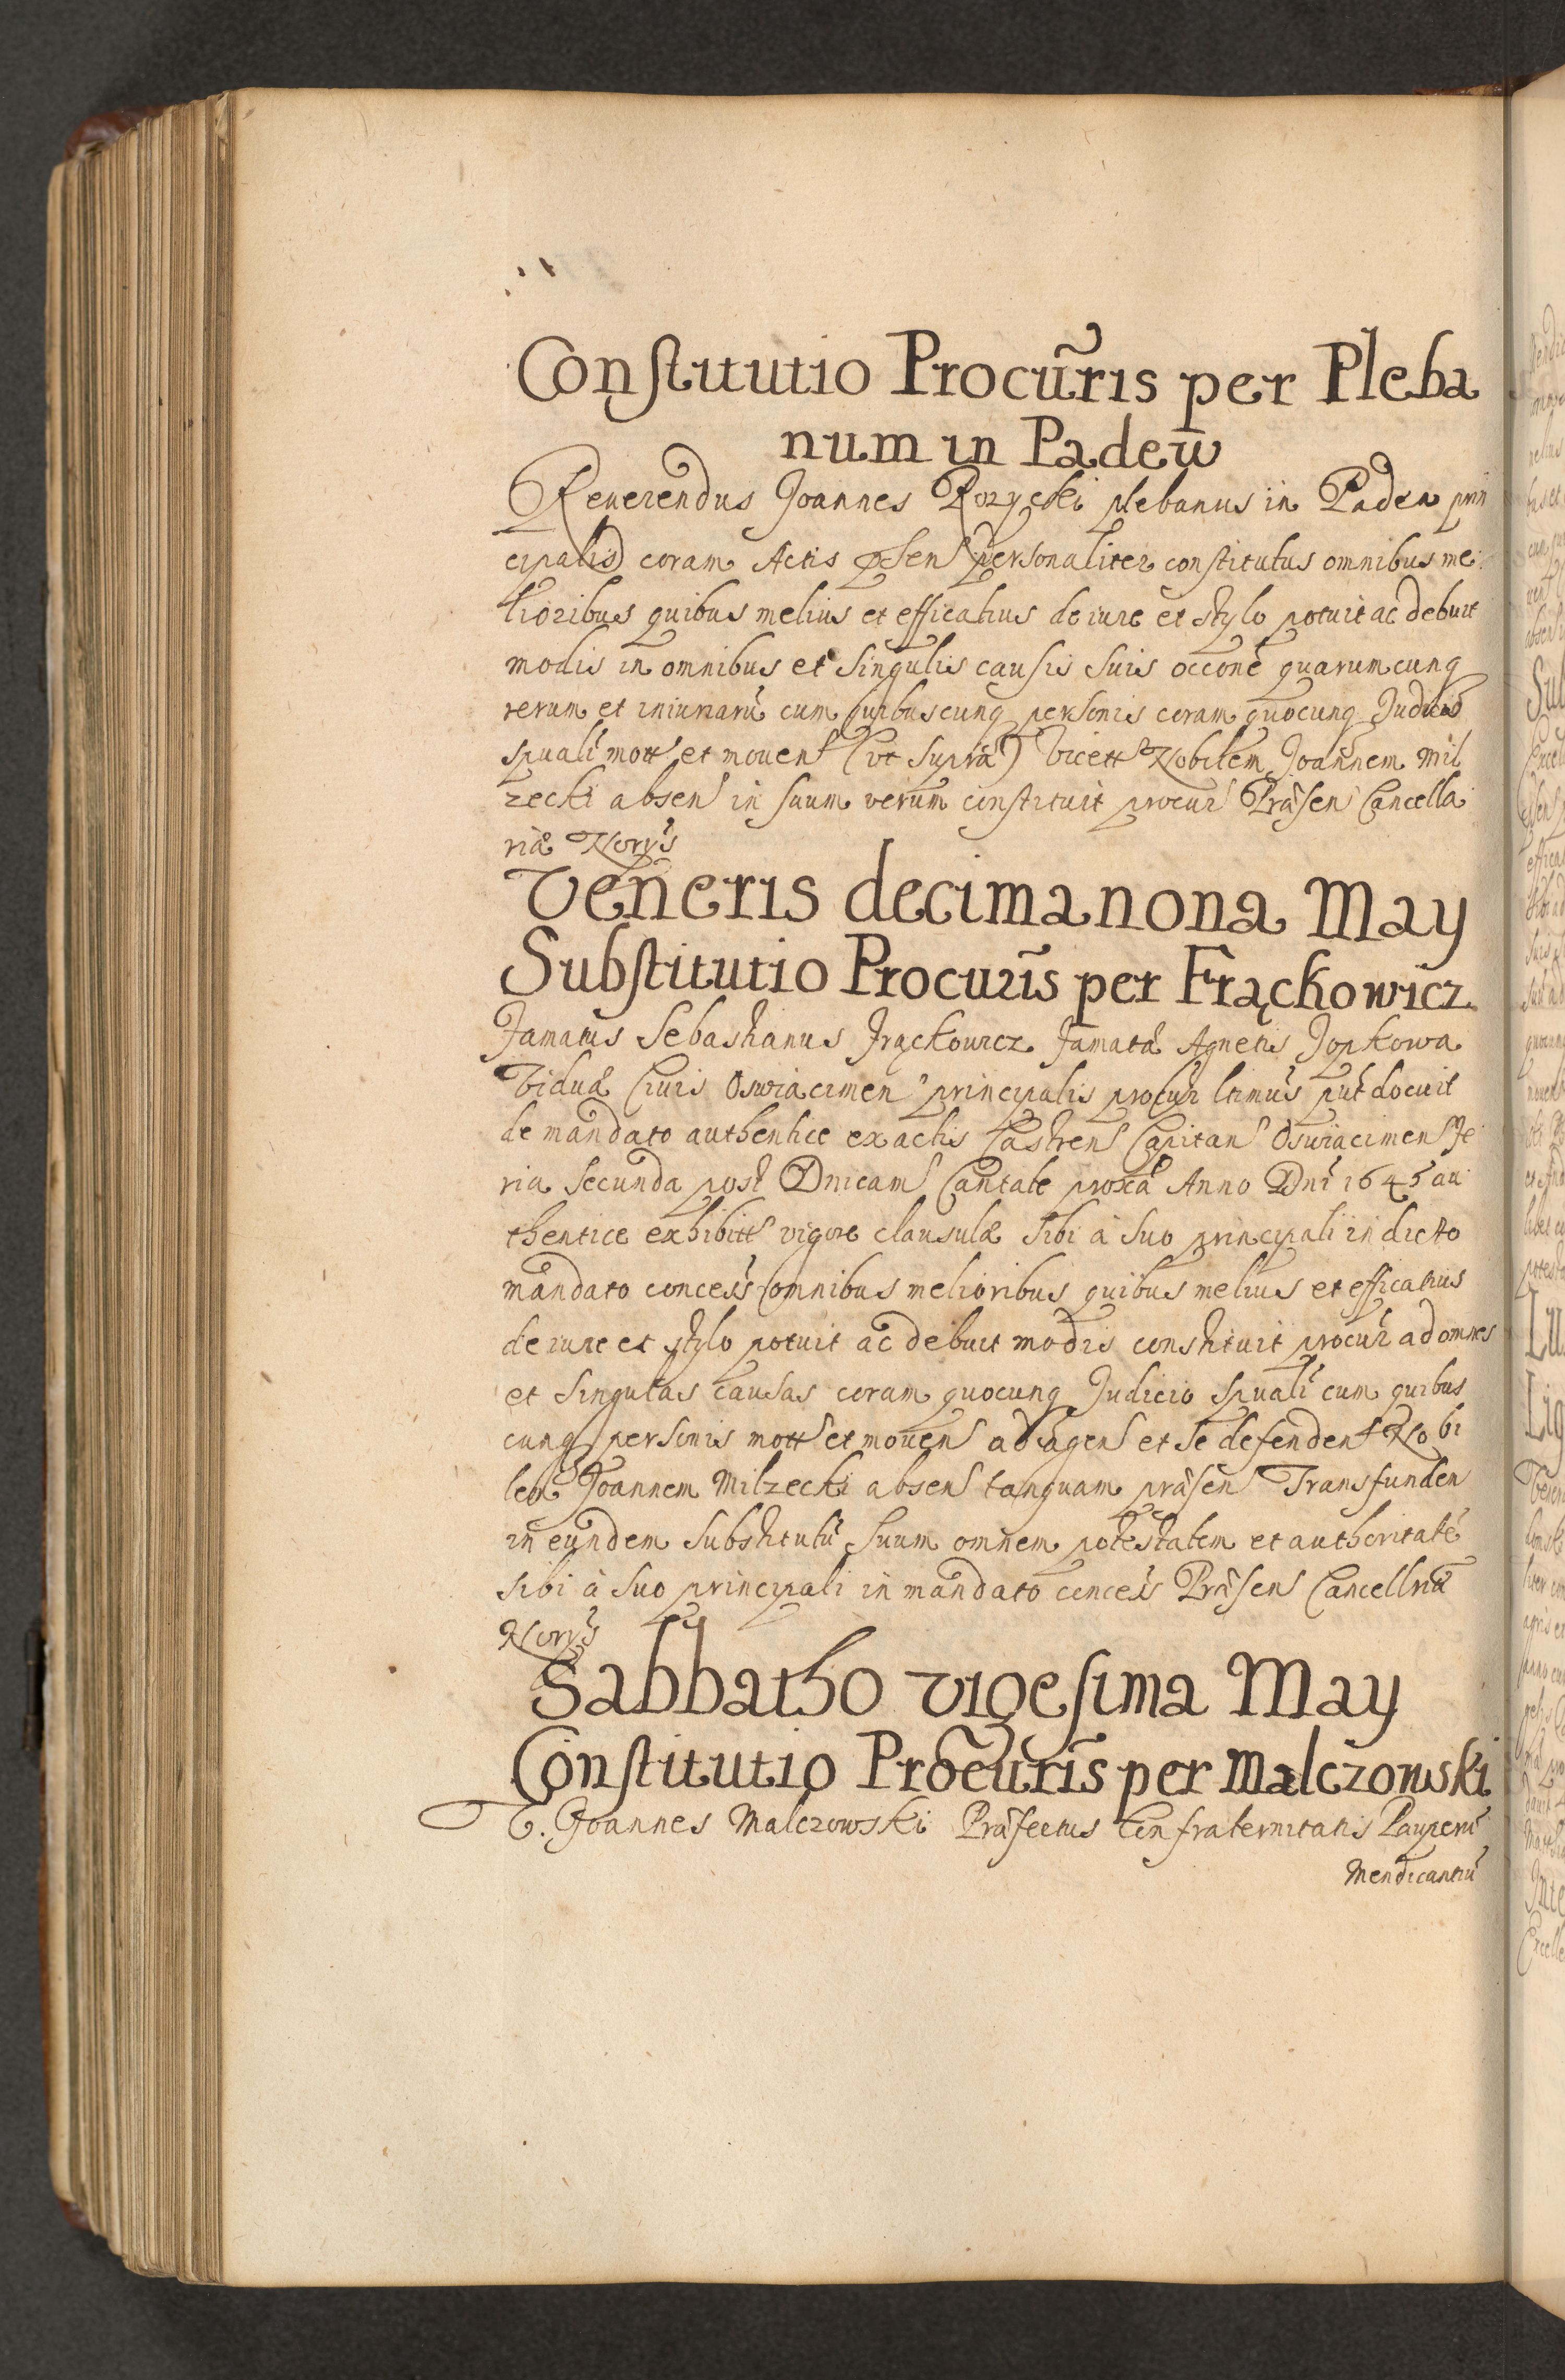 Constitutio Procur̃is per Pleba
num in Padew̃
Reuerendus Joannes Rozycki plebanus in Padew prin
cipalis coram Actis p̄sen personaliter constitutus omnibus me
lioribus quibus melius et efficatius de iure et stylo potuit ac debuit
modis in omnibus et singulis causis suis occone quarumcunq
rerum et iniuriarũ cum quibuscunq personis coram quocunq Judicio
spuali mott et mouen (vt supra) vicett Nobilem Joannem Mil
zecki absen in suum verum constituit procur Præsen Cancella
riæ Norys
Veneris decima nona May
Substitutio Procuris per Frąckowicz
Famatus Sebastianus Frąckowicz Famatæ Agnetis Jopkowa
Viduæ Ciuis Oswiacimen principalis procur ltimus put docuit
de mandato authentice ex actis Castren Capitan Oswiacimen Fe
ria secunda post Dnicam Cantate proxa Anno Dni 1645 au
thentice exhibitt vigore clausulæ sibi à suo principali in dicto
mandato concess omnibus melioribus quibus melius et efficatius
de iure et stylo potuit ac debuit modis constituit procur ad omnes
et singulas causas coram quocunq Judicio spuali cum quibus
cunq personis mott et mouen ad agen et se defenden Nobi
lem Joannem Milzecki absen tanquam præsen Transfunden
in eundem substitutũ suum omnem potestatem et authoritatẽ
sibi à suo principali in mandato concess Præsen Cancellriæ
Norys
Sabbatho vigesima May
Constitutio Procuris per Malczowski
G. Joannes Malczowski Præfectus Confraternitatis Pauperũ
Mendicantiũ